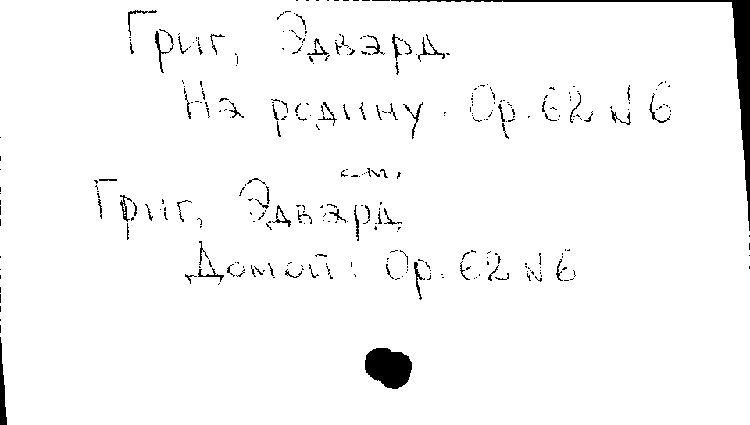 Григ, Эдвард
На родину. Op. 62 N 6
см.
Григ, Эдвард
Домой: Op. 62 N 6